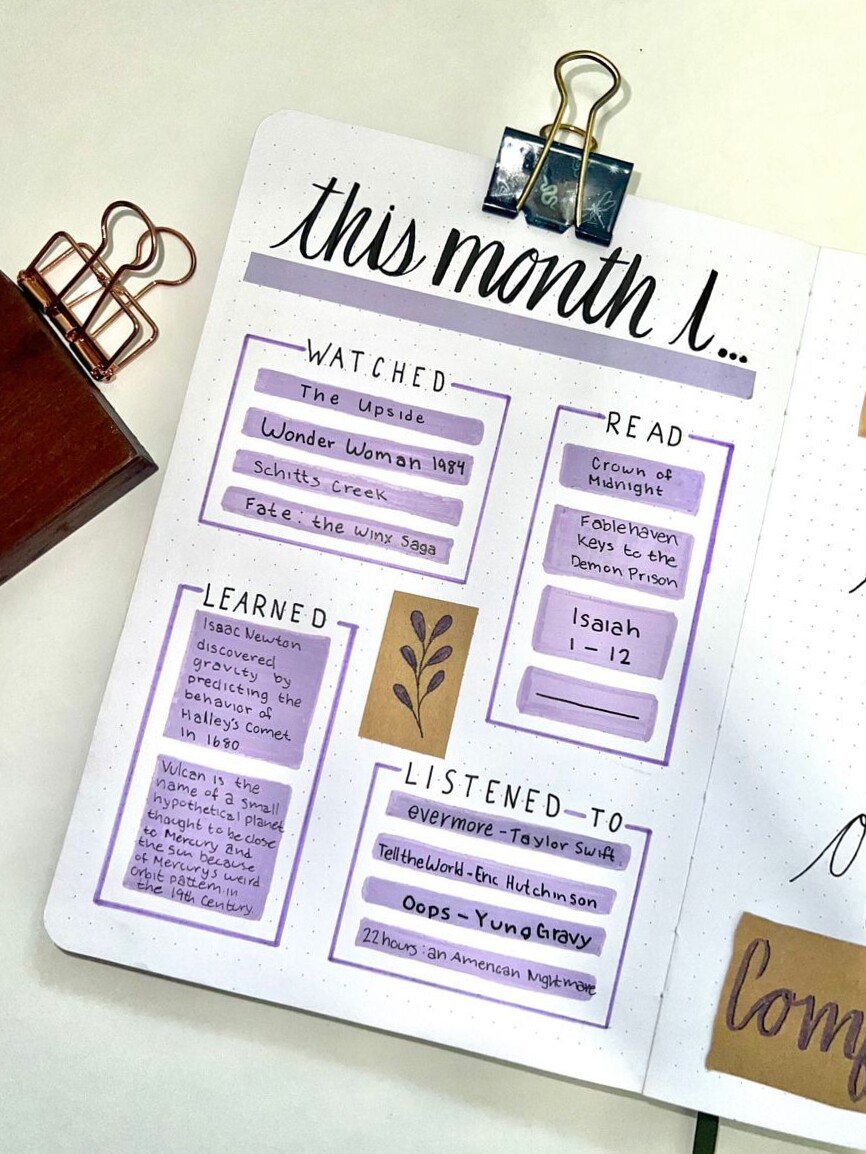 this month I...
WATCHED
The Upside
Wonder Woman 1984
Schitts Creek
Fate: the Winx Saga
READ
Crown of
Midnight
Fablehaven
Keys to the
Demon Prison
Isaiah
1 - 12
LEARNED
Isaac Newton
discovered
gravity by
predicting the
behavior of
Halley's Comet
in 1680
Vulcan is the
name of a small
hypothetical planet
thought to be close
to Mercury and
the sun because
of Mercury's weird
orbit pattern in
the 19th Century.
LISTENED-TO
evermore - Taylor Swift
Tell the World - Eric Hutchinson
Oops - Yung Gravy
22 hours: an American Nightmare
Com